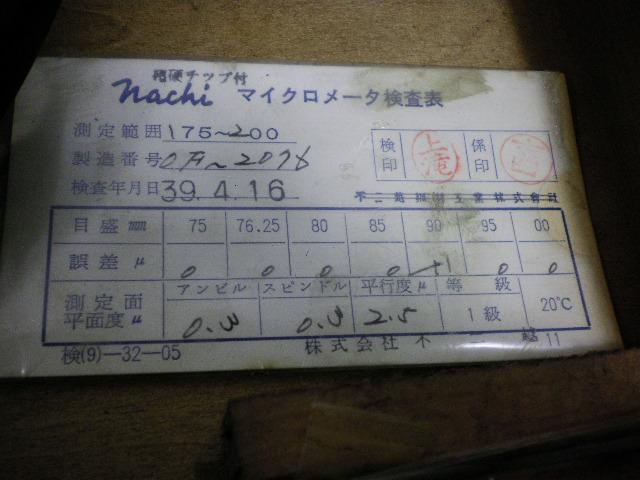 超硬チップ付
nachi マイクロメータ検査表
測定範囲 175~200
製造番号
検査年月日 39.4.16
検印 上滝 係印
不二越鋼材工業株式会社
目盛 mm 75 76.25 80 85 90 95 00
誤差 μ 0 0 0 0 +1 0 0
測定面平面度μ アンビル 0.3 スピンドル 0.3 平行度μ 2.5 等級 1級 20℃
検(9)—32—05 株式会社 不二越 11